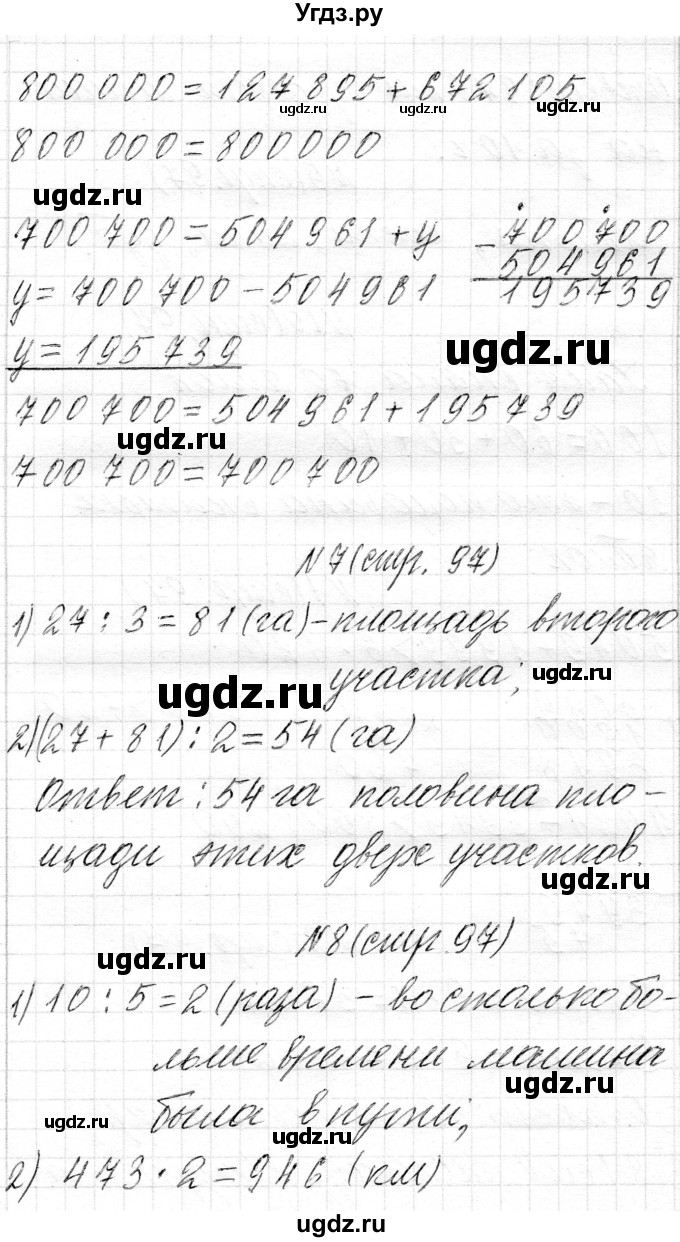 Угдз.ру
800 000 = 127 895 + 672 105
ugdz.ru ugdz.ru
800 000 = 800000
ugdz.ru
700 700 = 504 961 + y
y = 700 700 - 504 961
- 700700
504961
195739
y = 195 739
ugdz.ru
700 700 = 504 961 + 195 739
ugdz.ru
700 700 = 700 700
N 7 (стр. 97)
1) 27 : 3 = 81 (га) - площадь второго
участка;
ugdz.ru ugdz.ru
2) (27 + 81) : 2 = 54 (га)
Ответ: 54 га половина пло-
щади этих двух участков.
ugdz.ru
N 8 (стр 97)
ugdz.ru
1) 10 : 5 = 2 (раза) - во столько бо-
льше времени машина
ugdz.ru
была в пути;
ugdz.ru ugdz.ru
2) 473 · 2 = 946 (км)
ugdz.ru